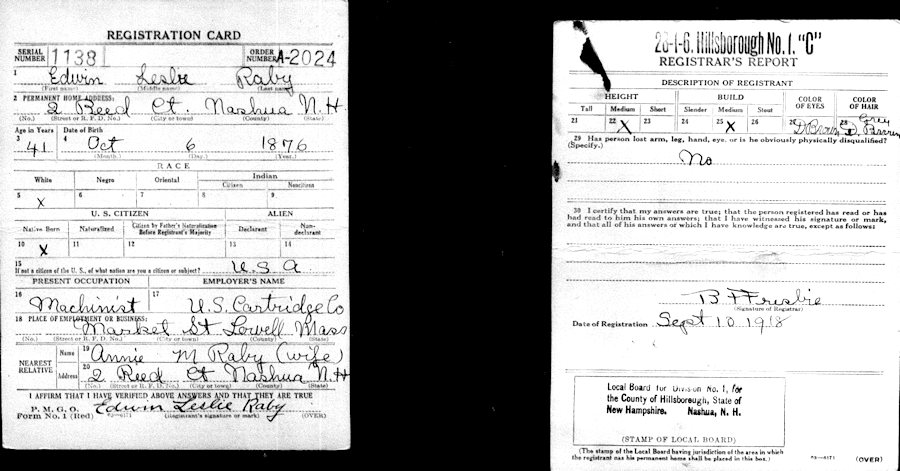 REGISTRATION CARD
SERIAL NUMBER 1138 ORDER NUMBER A-2024
1 Edwin Leslie Raby
(First name) (Middle name) (Last name)
2 PERMANENT HOME ADDRESS:
2 Reed Ct. Nashua N.H.
(No.) (Street or R. F. D. No.) (City or town) (County) (State)
Age in Years Date of Birth
3 41 4 Oct 6 1876
(Month.) (Day.) (Year.)
RACE
White Negro Oriental Indian
Citizen Noncitizen
5 6 7 8 9
X
U. S. CITIZEN ALIEN
Native Born Naturalized Citizen by Father's Naturalization Before Registrant's Majority Declarant Non-declarant
10 11 12 13 14
X
15
If not a citizen of the U. S., of what nation are you a citizen or subject? U.S.A
PRESENT OCCUPATION EMPLOYER'S NAME
16 Machinist 17 U.S. Cartridge Co
18 PLACE OF EMPLOYMENT OR BUSINESS:
Market St Lowell Mass
(No.) (Street or R. F. D. No.) (City or town) (County) (State)
NEAREST RELATIVE Name 19 Annie M Raby (wife)
Address 20 2 Reed Ct Nashua N.H
(No.) (Street or R. F. D. No.) (City or town) (County) (State)
I AFFIRM THAT I HAVE VERIFIED ABOVE ANSWERS AND THAT THEY ARE TRUE
P. M. G. O. Edwin Leslie Raby
Form No. 1 (Red) (Registrant's signature or mark) (OVER)
28-1-6. Hillsborough No. 1. "C"
REGISTRAR'S REPORT
DESCRIPTION OF REGISTRANT
HEIGHT BUILD COLOR OF EYES COLOR OF HAIR
Tall Medium Short Slender Medium Stout
21 22 X 23 24 25 X 26 27 D Brown 28 Grey D. Brown
29 Has person lost arm, leg, hand, eye, or is he obviously physically disqualified?
(Specify.)
No
30 I certify that my answers are true; that the person registered has read or has
had read to him his own answers; that I have witnessed his signature or mark,
and that all of his answers of which I have knowledge are true, except as follows:
B F Frisbie
(Signature of Registrar)
Date of Registration Sept 10 1918
Local Board for Division No. 1, for
the County of Hillsborough, State of
New Hampshire. Nashua, N. H.
(STAMP OF LOCAL BOARD)
(The stamp of the Local Board having jurisdiction of the area in which
the registrant has his permanent home shall be placed in this box.)
(OVER)